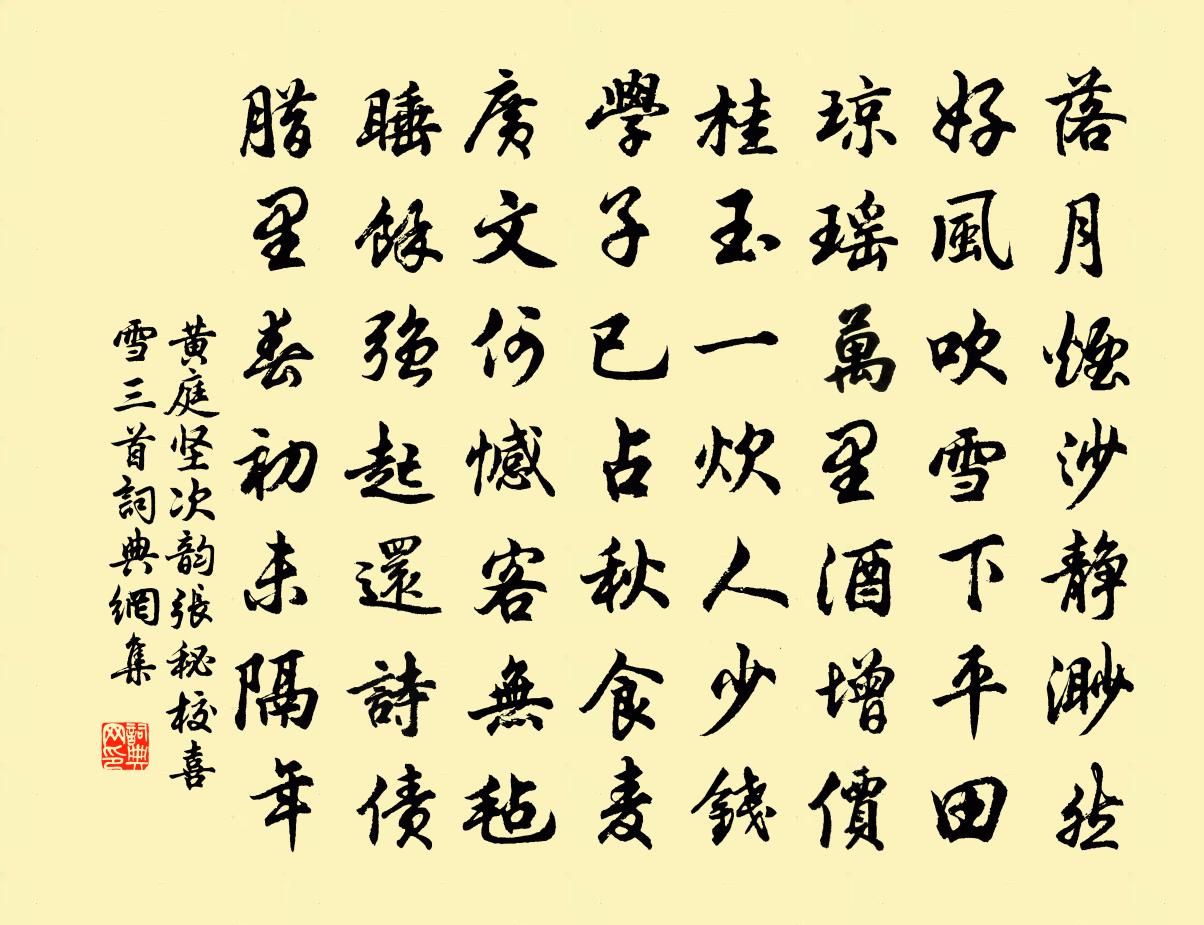 落月煙沙静渺然
好風吹雪下平田
琼瑶萬里酒增價
桂玉一炊人少錢
學子已占秋食麦
廣文何憾客無毡
睡餘強起還詩债
腊里春初未隔年
黄庭坚次韵張秘校喜
雪三首詞典網集
詞典网印